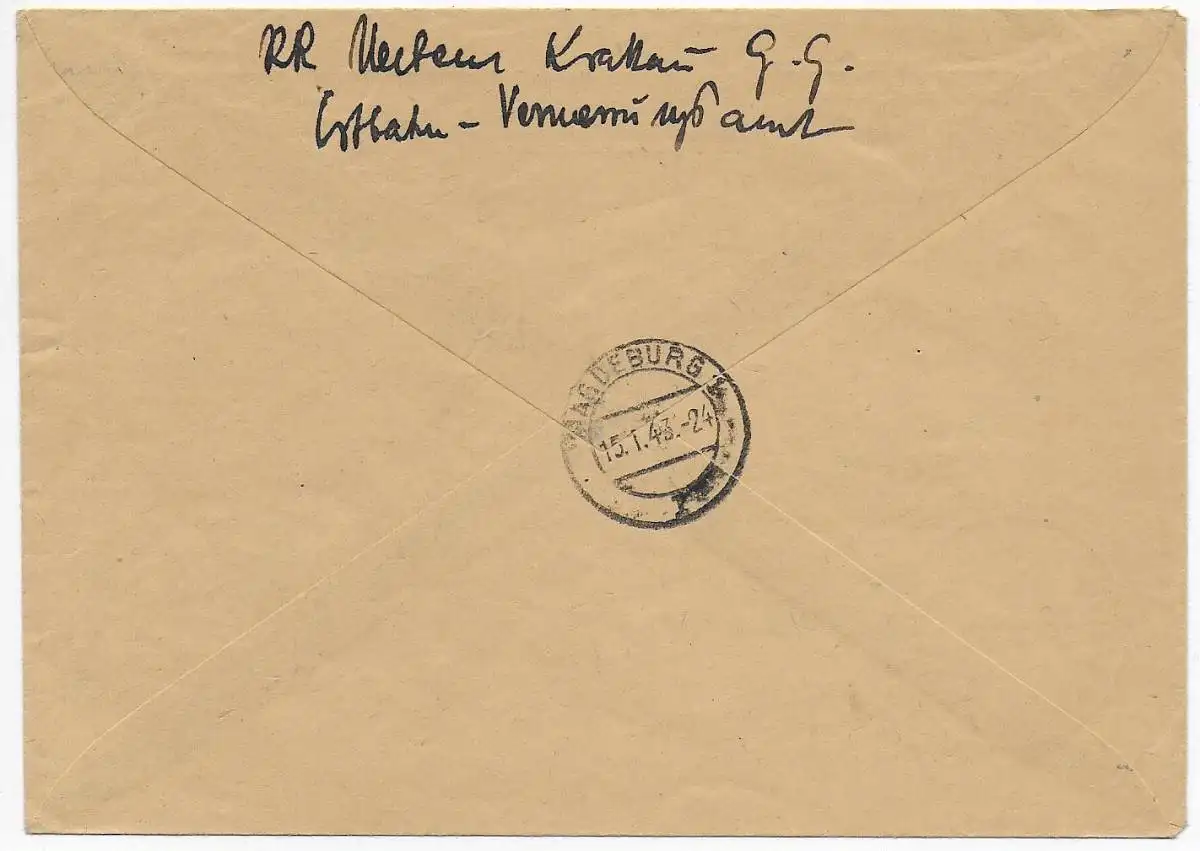 RR Mertens Krakau G.G.
Ostbahn - Vermessungsamt
MAGDEBURG
15.1.43.-24